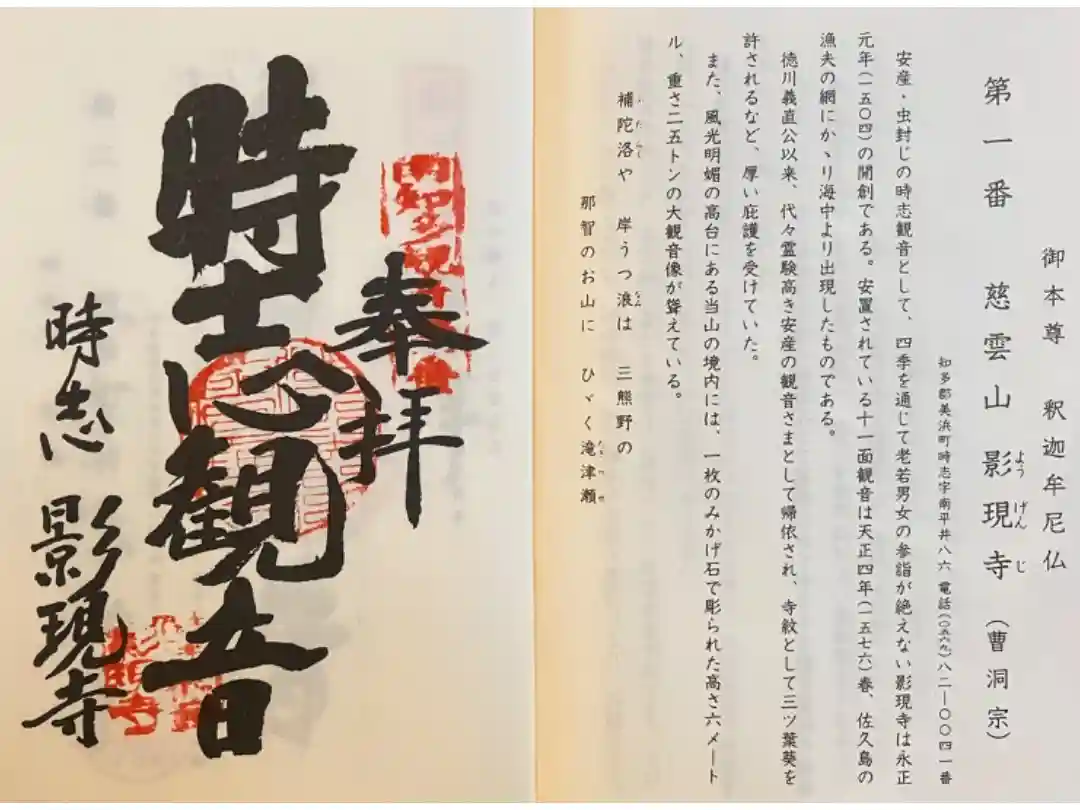 御本尊 釈迦牟尼仏
第一番 慈雲山 影現寺(曹洞宗)
ようげんじ
知多郡美浜町時志字南平井八六 電話(〇五六九)八二―〇〇四一番
安産・虫封じの時志観音として、四季を通じて老若男女の参詣が絶えない影現寺は永正
元年(一五〇四)の開創である。安置されている十一面観音は天正四年(一五七六)春、佐久島の
漁夫の網にかゝり海中より出現したものである。
徳川義直公以来、代々霊験高き安産の観音さまとして帰依され、寺紋として三ツ葉葵を
許されるなど、厚い庇護を受けていた。
また、風光明媚の高台にある当山の境内には、一枚のみかげ石で彫られた高さ六メート
ル、重さ二五トンの大観音像が聳えている。
補陀洛や 岸うつ浪は 三熊野の
那智のお山に ひゞく滝津瀬
奉拝
時志観音
時志 影現寺